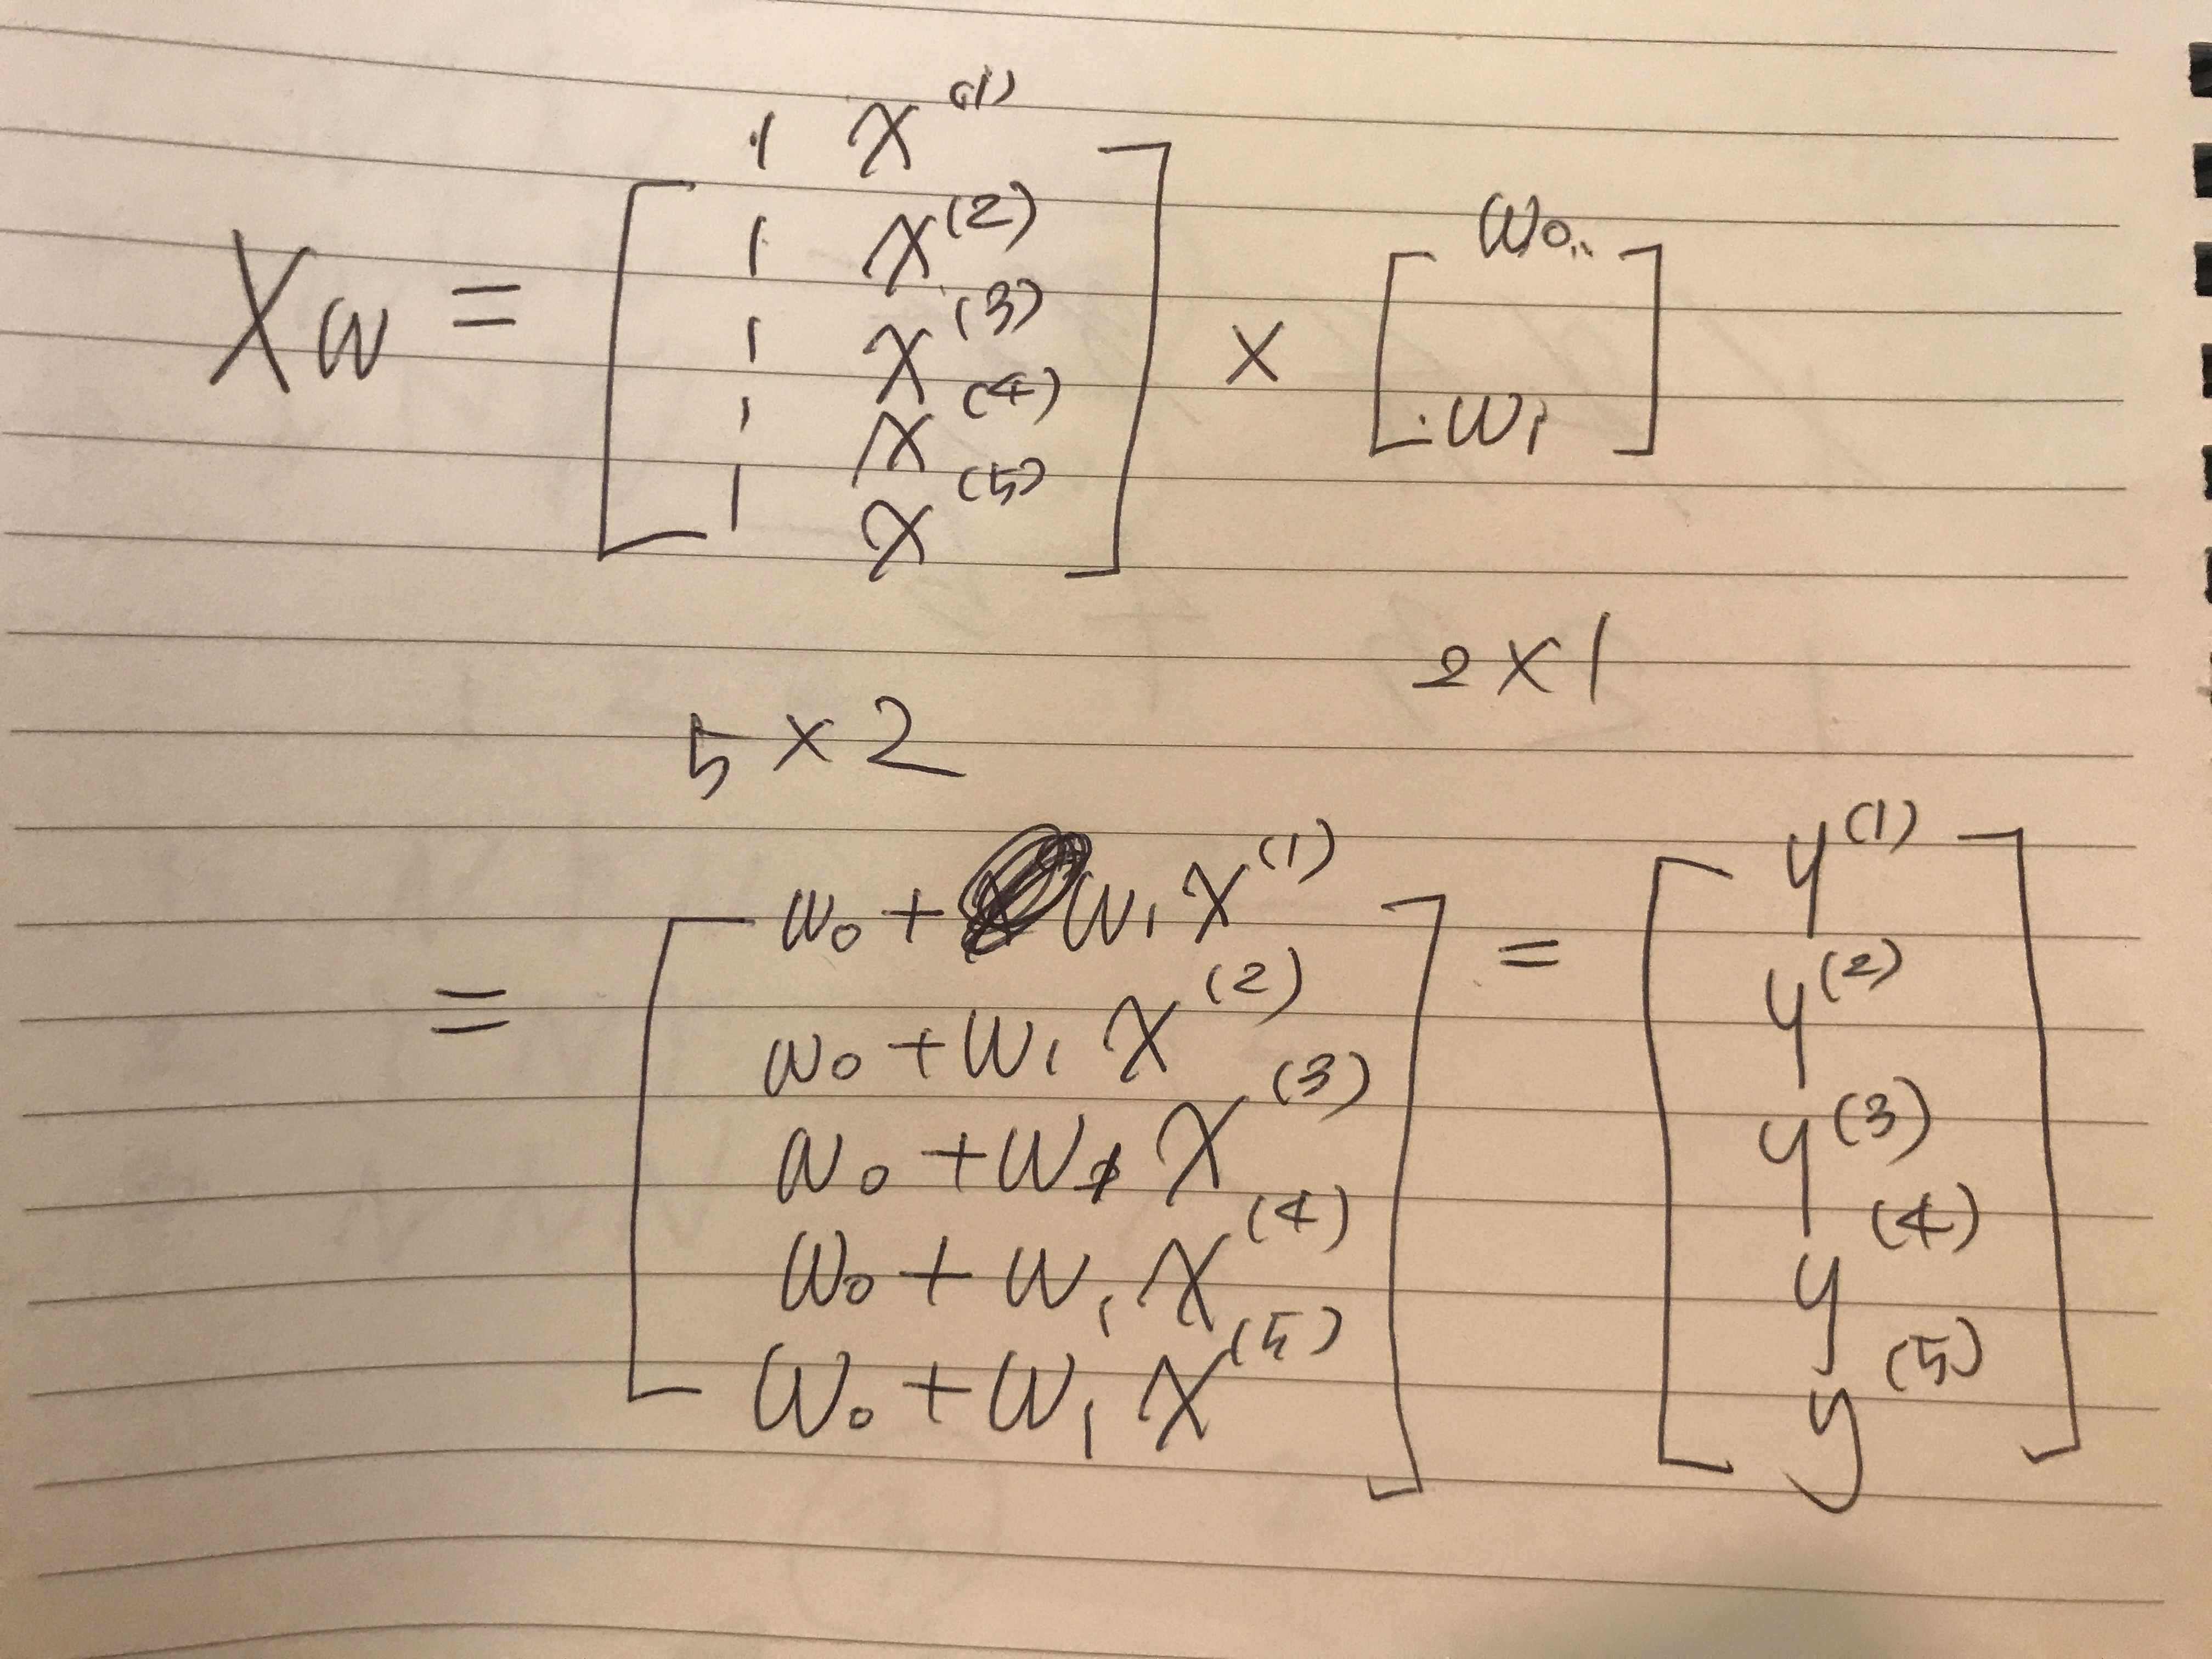 Xw = [ 1 X^(1) 1 X^(2) 1 X^(3) 1 X^(4) 1 X^(5) ] × [ w₀ w₁ ]
5 × 2 2 × 1
= [ w₀ + w₁ X^(1) w₀ + w₁ X^(2) w₀ + w₁ X^(3) w₀ + w₁ X^(4) w₀ + w₁ X^(5) ] = [ y^(1) y^(2) y^(3) y^(4) y^(5) ]